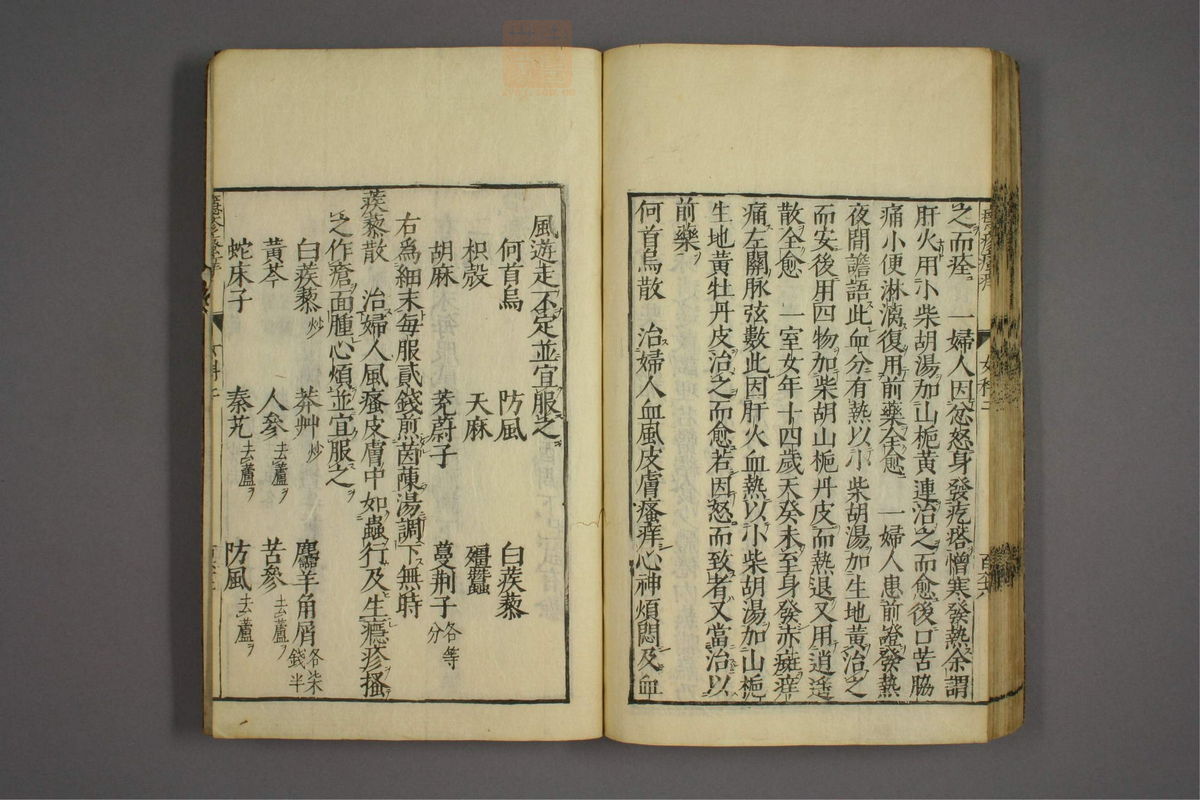 之而痊　一婦人因忿怒身發疙瘩憎寒發熱余謂
肝火用小柴胡湯加山梔黃連治之而愈後口苦脇
痛小便淋漓復用前藥全愈　一婦人患前證發熱
夜間譫語此血分有熱以小柴胡湯加生地黃治之
而安後用四物加柴胡山梔丹皮而熱退又用逍遙
散全愈　一室女年十四歲天癸未至身發赤癍痒
痛左關脉弦數此因肝火血熱以小柴胡湯加山梔
生地黃牡丹皮治之而愈若因怒而致者又當治以
前藥
何首烏散　治婦人血風皮膚瘙痒心神煩悶及血
風遊走不定並宜服之
何首烏　防風　白蒺藜
枳殼　天麻　殭蠶
胡麻　茺蔚子　蔓荆子各等分
右爲細末每服貳錢煎茵蔯湯調下無時
蒺藜散　治婦人風瘙皮膚中如蟲行及生癮疹搔
之作瘡面腫心煩並宜服之
白蒺藜炒　莽艸炒　麢羊角屑各柒錢半
黃芩　人參去蘆ヲ　苦參去蘆ヲ
蛇床子　秦艽去蘆ヲ　防風去蘆ヲ